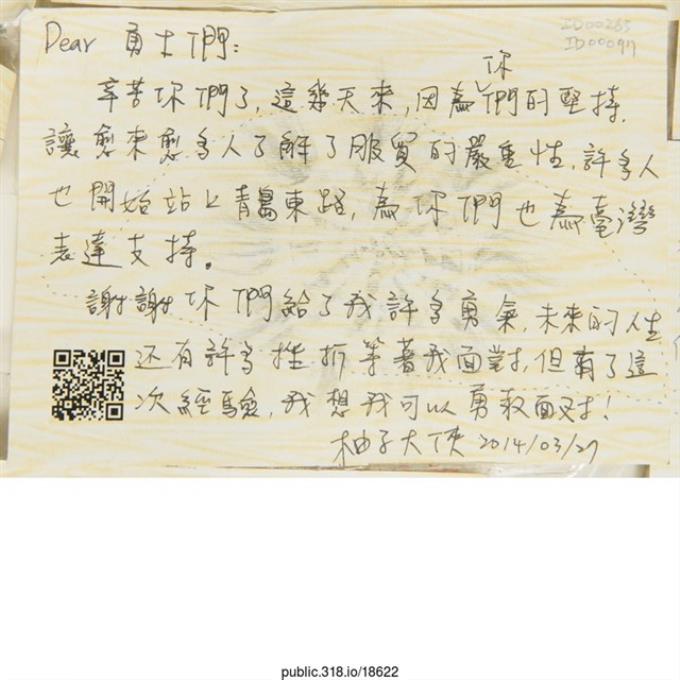 ID00265
ID00097
Dear 勇士們：
辛苦你們了，這幾天來，因為你們的堅持，
讓愈來愈多人了解了服貿的嚴重性，許多人
也開始站上青島東路，為你們也為臺灣
表達支持。
謝謝你們給了我許多勇氣，未來的人生
还有許多挫折等著我面對，但有了這
次經驗，我想我可以勇敢面对！
柚子大俠 2014/03/27
public.318.io/18622